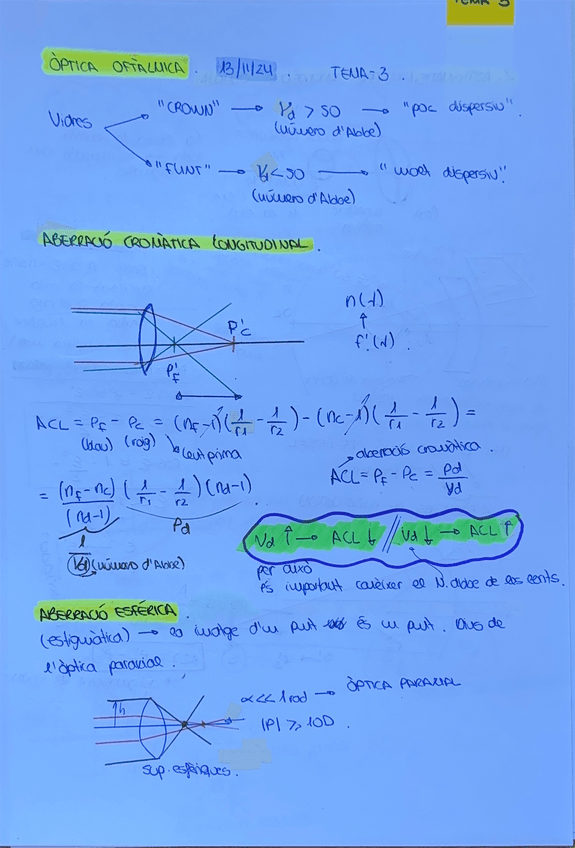 TEMA 3
ÒPTICA OFTÀLMICA. 13/11/24. TEMA-3.
Vidres
"CROWN" → Vd > 50 → "poc dispersiu".
(número d'Abbe)
"FLINT" → Vd < 50 → "molt dispersiu".
(número d'Abbe)
ABERRACIÓ CROMÀTICA LONGITUDINAL.
n(λ)
↑
f'(λ).
P'c
P'F
ACL = PF - Pc = (nF-1)(1/r1 - 1/r2) - (nc-1)(1/r1 - 1/r2) =
(blau) (roig) lent prima
aberració cromàtica.
ACL = PF - Pc = Pd/Vd
= (nF - nc)/(nd-1) (1/r1 - 1/r2)(nd-1).
Pd
1/Vd (número d'Abbe)
Vd ↑ → ACL ↓ // Vd ↓ → ACL ↑
per això
és important conèixer el N. d'Abbe de les lents.
ABERRACIÓ ESFÈRICA.
(estigmàtica) → la imatge d'un punt és un punt. Dins de
l'òptica paraxial.
h
α << 1 rad → ÒPTICA PARAXIAL
|P| ≥ 10D.
sup. esfèriques.